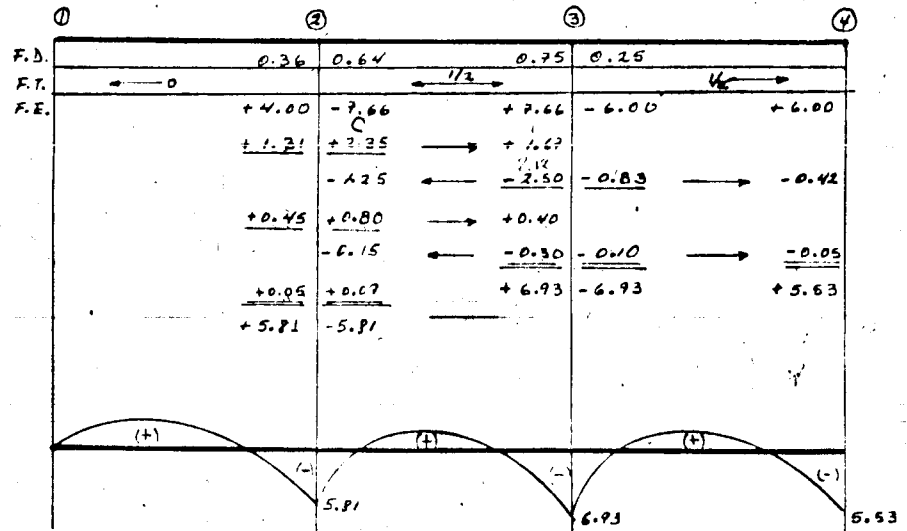 ① ② ③ ④
F.D. 0.36 0.64 0.75 0.25
F.T. ← 0 ← 1/2 → →
F.E. +4.00 -7.66 +7.66 -6.00 +6.00
C
+1.31 → +
-1.25 ← -2.50 -0.83 → -0.42
+0.45 +0.80 → +0.40
-0.15 ← -0.30 -0.10 → -0.05
+0.05 +6.93 -6.93 +5.53
+5.81 -5.81
(+) (+) (+)
(-) (-) (-)
5.81 6.93 5.53